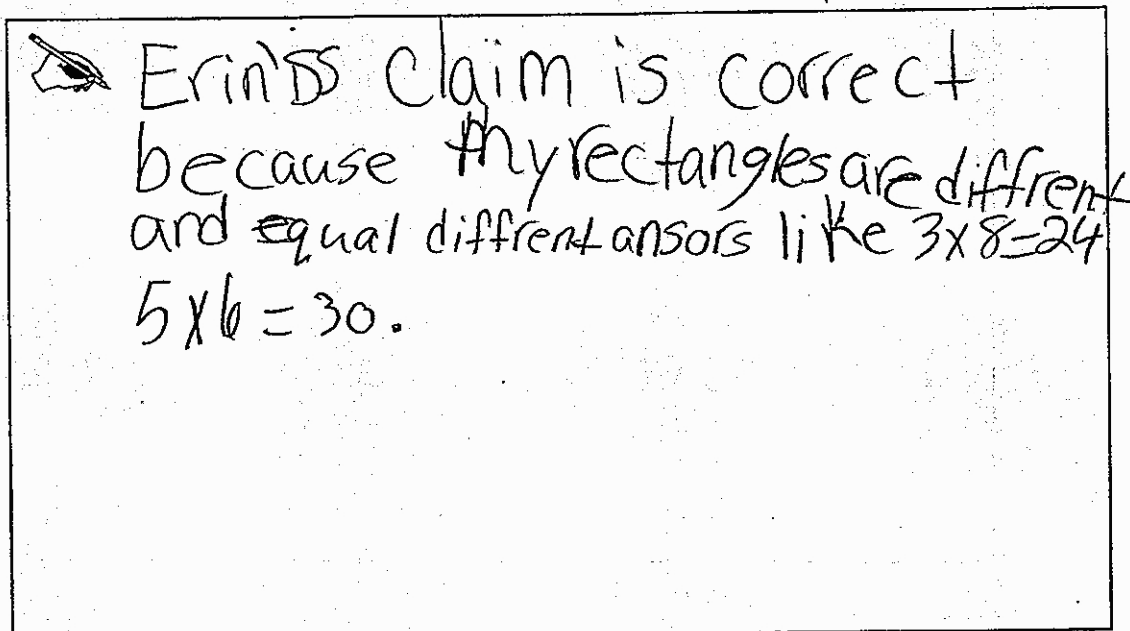 Erin's Claim is correct
because my rectangles are diffrent
and equal diffrent ansors like 3x8=24
5x6=30.